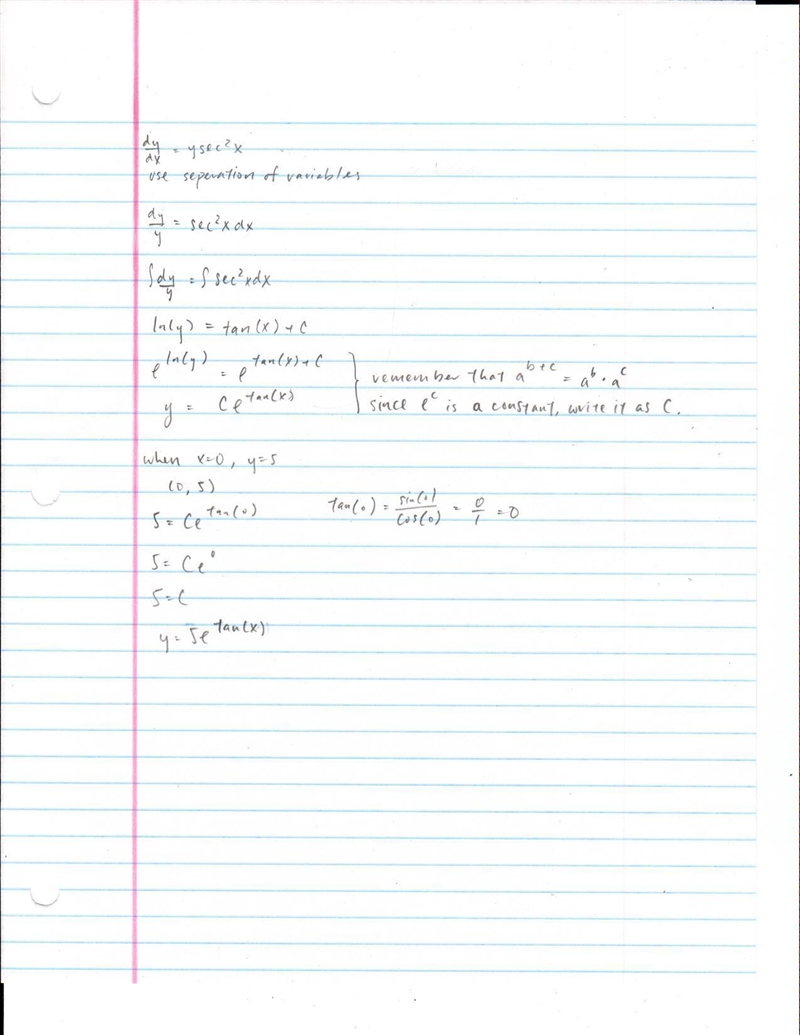 dy/dx = y sec²x
use seperation of variables
dy/y = sec²x dx
∫ dy/y = ∫ sec²x dx
ln(y) = tan(x) + C
e^ln(y) = e^tan(x)+C } remember that a^b+c = a^b · a^c
y = Ce^tan(x) since e^c is a constant, write it as C.
when x=0, y=5
(0, 5)
5 = Ce^tan(0) tan(0) = sin(0)/cos(0) = 0/1 = 0
5 = Ce^0
5 = C
y = 5e^tan(x)